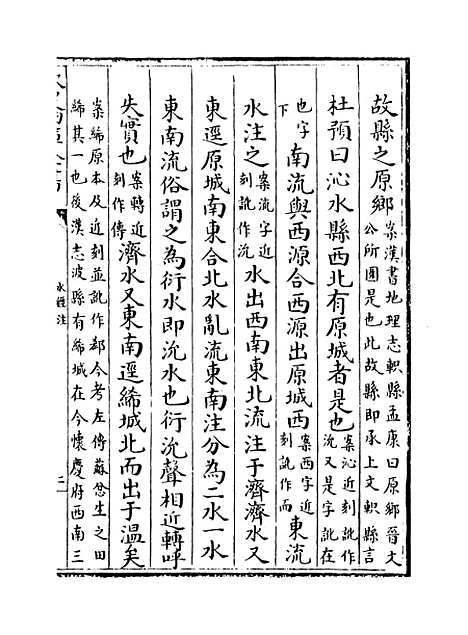 故縣之原鄉案漢書地理志軹縣孟康曰原鄉晉文公所圍是也此故縣即承上文軹縣言
杜預曰沁水縣西北有原城者是也案沁近刻訛作沇又是字訛在
也字下南流與西源合西源出原城西案西字近刻訛作而東流
水注之案流字近刻訛作沇水出西南東北流注于濟濟水又
東逕原城南東合北水亂流東南注分為二水一水
東南流俗謂之為衍水即沇水也衍沇聲相近轉呼
失實也案轉近刻作傳濟水又東南逕絺城北而出于溫矣
案絺原本及近刻並訛作郗今考左傳蘇忿生之田
絺其一也後漢志波縣有絺城在今懷慶府西南三
水經注
二